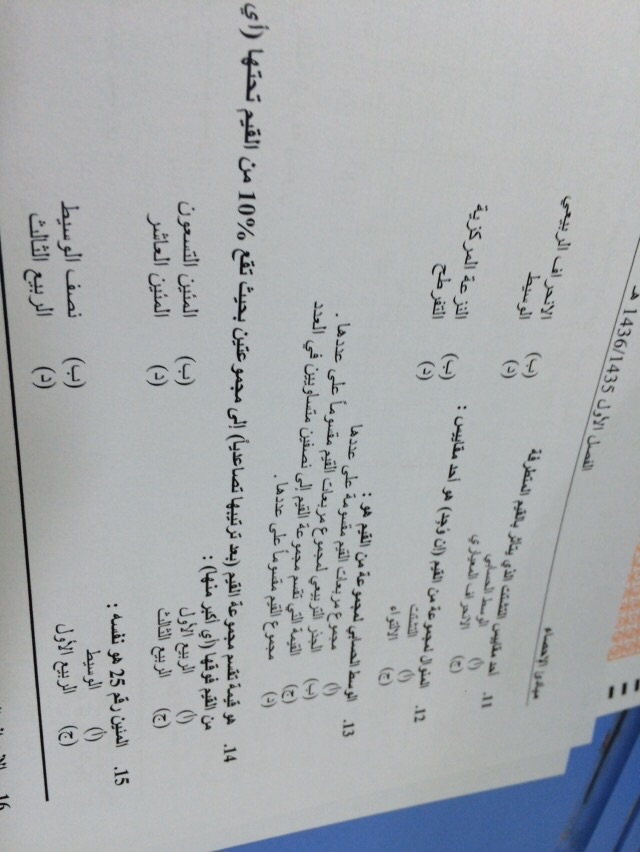 مبادئ الاحصاء
الفصل الأول 1436/1435 هـ
11. احد مقاييس التشتت الذي يتأثر بالقيم المتطرفة
(أ) الوسط الحسابي (ب) الانحراف الربيعي
(ج) الانحراف المعياري (د) الوسيط
12. المنوال لمجموعة من القيم (إن وُجد) هو احد مقاييس :
(أ) التشتت (ب) النزعة المركزية
(ج) الالتواء (د) التفرطح
13. الوسط الحسابي لمجموعة من القيم هو :
(أ) مجموع مربعات القيم مقسومة على عددها
(ب) الجذر التربيعي لمجموع مربعات القيم مقسوماً على عددها .
(ج) القيمة التي تقسم مجموعة القيم إلى نصفين متساويين في العدد
(د) مجموع القيم مقسوماً على عددها .
14. هو قيمة تقسم مجموعة القيم (بعد ترتيبها تصاعدياً) إلى مجموعتين بحيث تقع 10% من القيم تحتها (أي
من القيم فوقها (أي أكبر منها) :
(أ) الربيع الأول (ب) المئين التسعون
(ج) الربيع الثالث (د) المئين العاشر
15. المئين رقم 25 هو نفسه :
(أ) الوسيط (ب) نصف الوسيط
(ج) الربيع الأول (د) الربيع الثالث
16